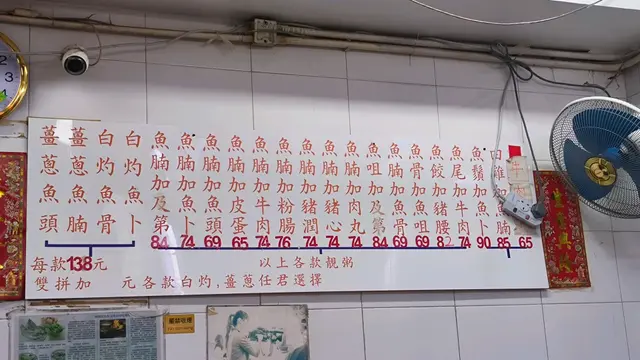 薑蔥魚頭
薑蔥魚腩
白灼魚骨
白灼魚卜
魚腩加及第 84
魚腩加魚卜 74
魚腩加魚頭 69
魚腩加皮蛋 65
魚腩加牛肉 74
魚腩加粉腸 76
魚腩加豬潤 74
魚腩加豬心 74
魚腩加肉丸 74
魚咀加及第 84
魚腩加魚骨 69
魚骨加魚咀 69
魚餃加豬腰 82
魚尾加 74
魚鬚加魚卜 90
加魚腩 85
65
每款138元
以上各款靚粥
雙拼加 元各款白灼,薑蔥任君選擇